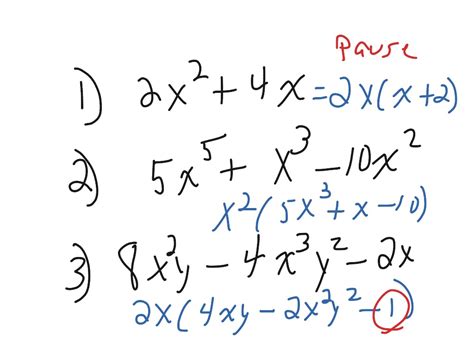 Pause
1) 2x² + 4x = 2x(x+2)
2) 5x⁵ + x³ - 10x²
x²(5x³ + x - 10)
3) 8x²y - 4x³y² - 2x
2x(4xy - 2x²y² - 1)